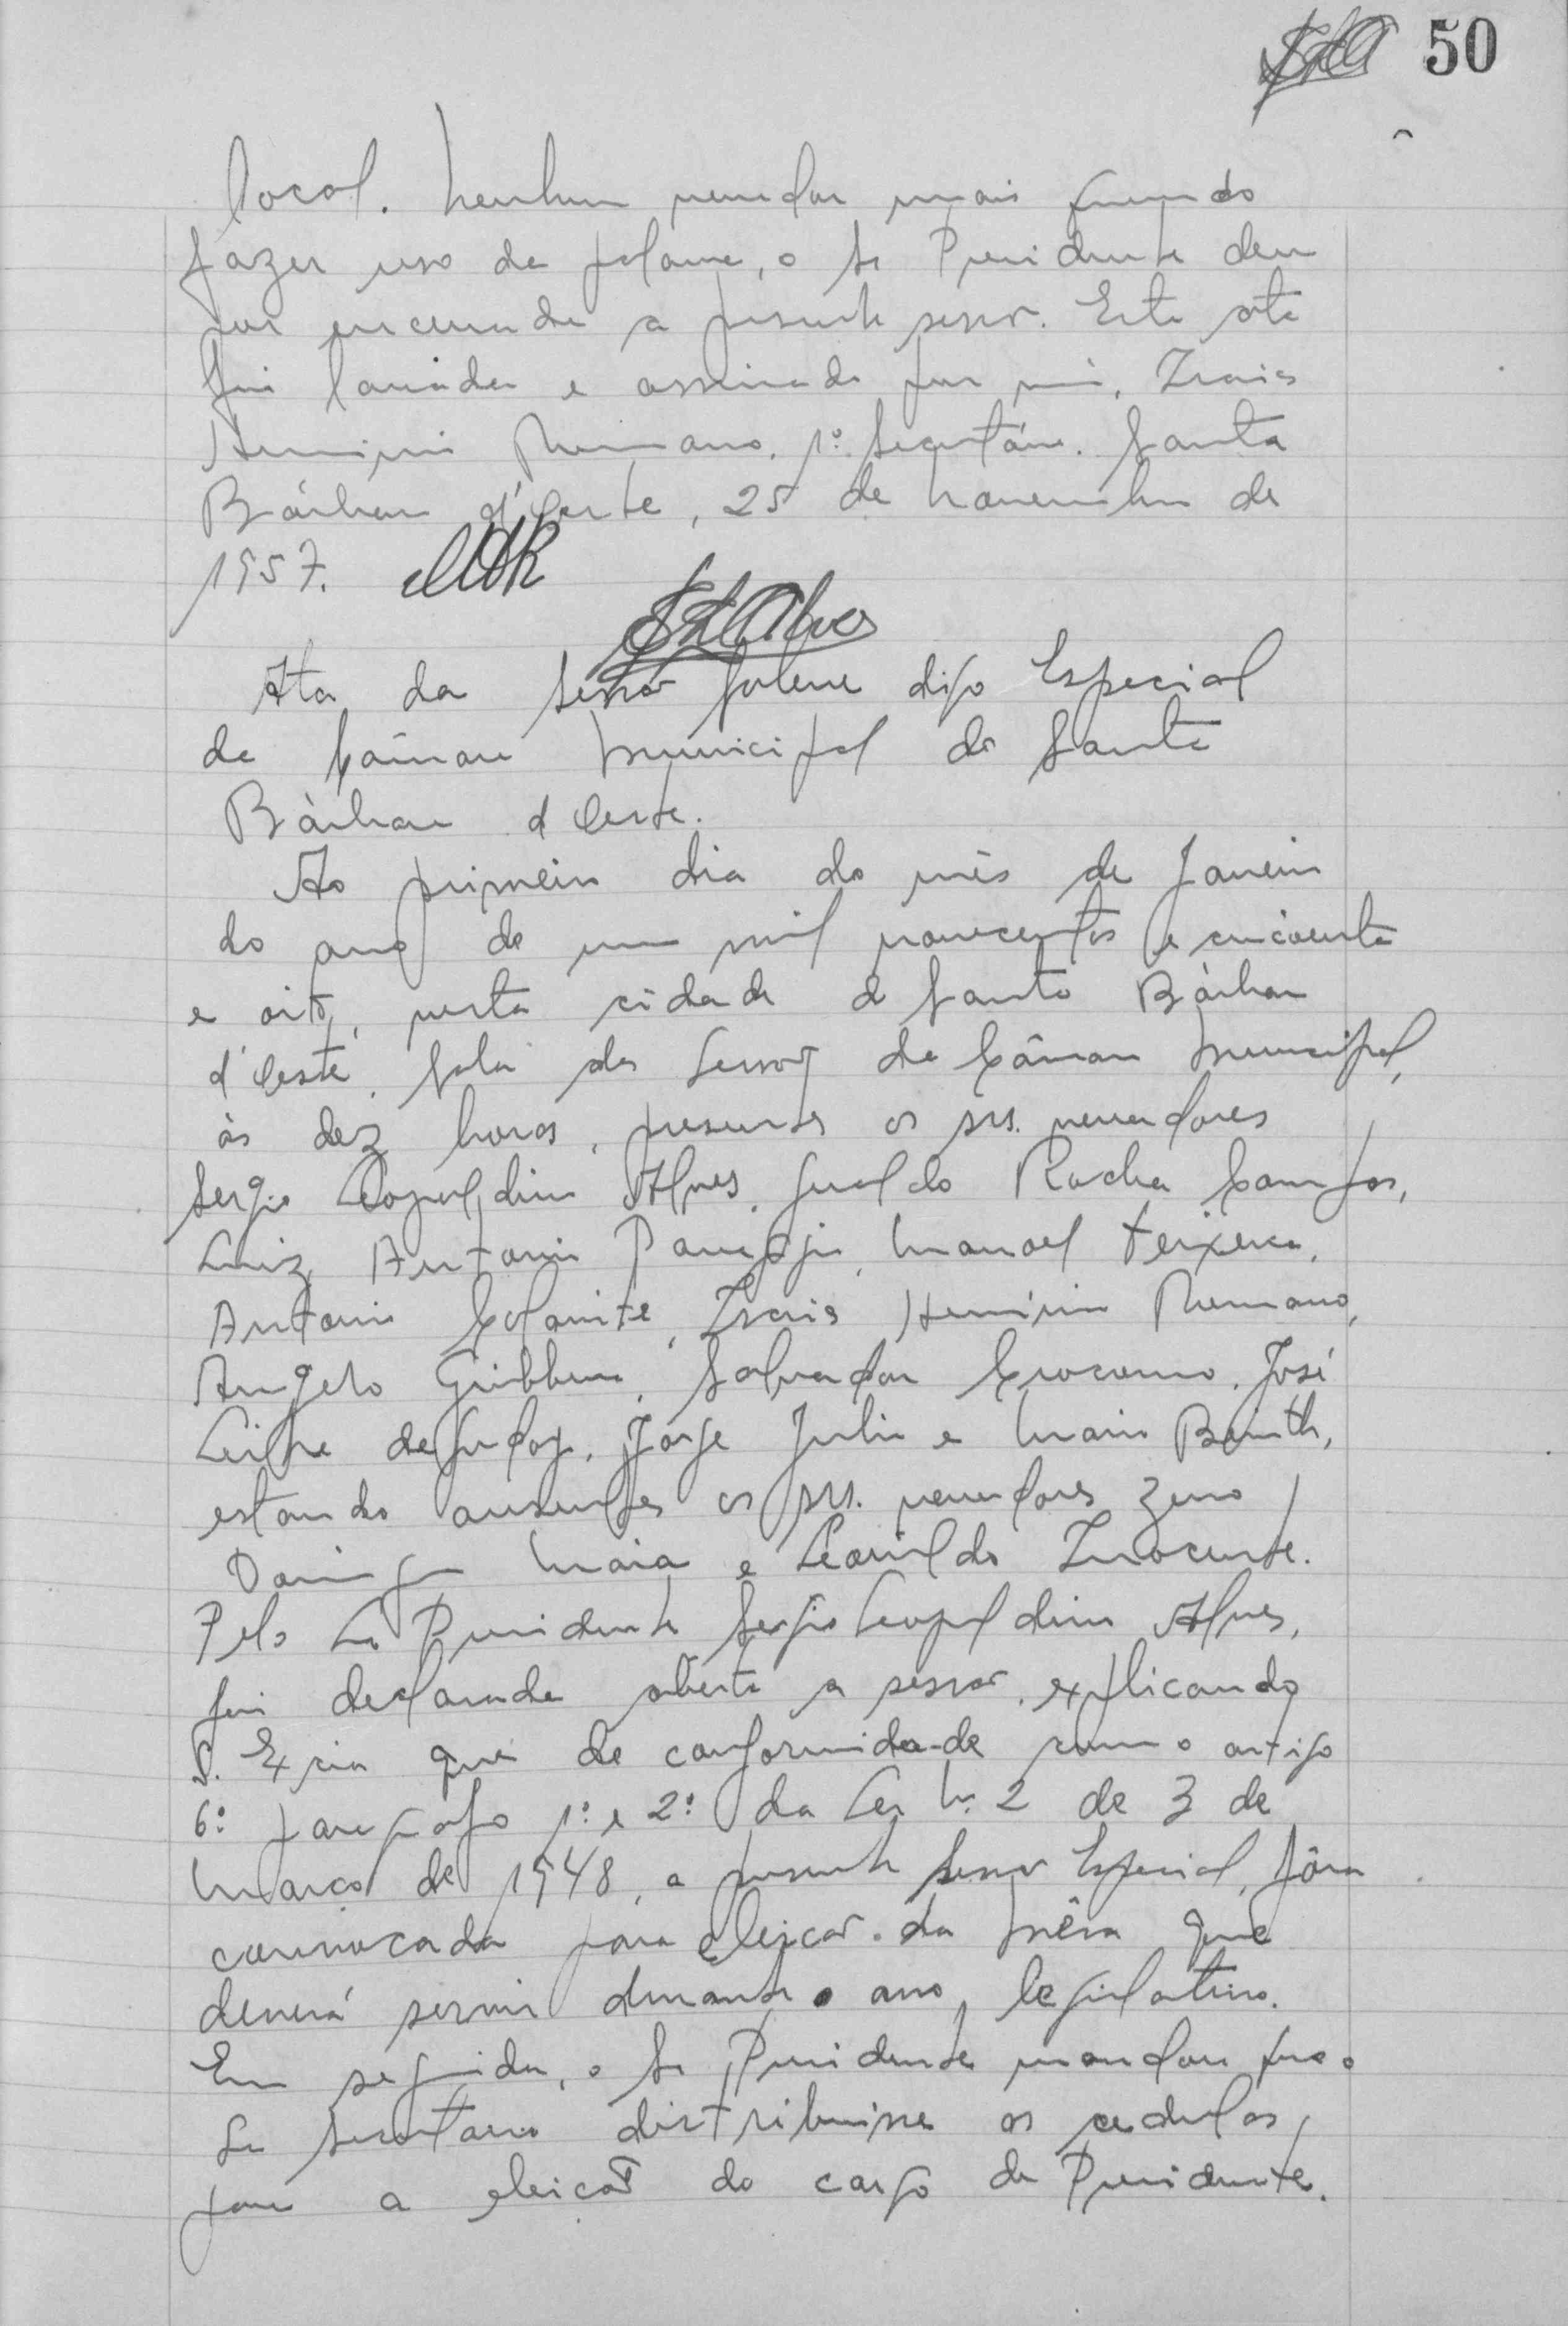 50
local. Nenhum vereador mais querendo
fazer uso da palavra, o Sr Presidente deu
por encerrada a presente sessão. Esta ata
foi lavrada e assinada por mim, Izaias
Herminio Romano, 1º Secretário. Santa
Bárbara d'Oeste, 25 de Novembro de
1957.
SLAlves
Ata da Sessão Solene digo Especial
da Câmara Municipal de Santa
Bárbara d Oeste.
Ao primeiro dia do mês de Janeiro
do ano de um mil novecentos e cincoenta
e oito, nesta cidade de Santa Bárbara
d'Oeste, Sala das Sessões da Câmara Municipal,
às dez horas, presentes os srs. vereadores
Sergio Leopoldino Alves, Geraldo Rocha Campos,
Luiz Antonio Panaggio, Manoel Teixeira,
Antonio Izaias Herminio Romano,
Angelo Salvador José
Leite de Godoy, Jorge Julio e Mario
estando ausentes os srs. vereadores Zeno
Domingos Maia e Leonildo Inocente.
Pelo Sr Presidente Sergio Leopoldino Alves,
foi declarada aberta a sessão, explicando
S. Excia que de conformidade com o artigo
6º paragrafo 1º e 2º da Lei N. 2 de 3 de
Março de 1948, a presente Sessão Especial, fôra
convocada para eleição da Mêsa que
deverá servir durante o ano legislativo.
Em seguida, o Sr Presidente mandou que o
Sr Secretario distribuisse as cedulas
para a eleição do cargo de Presidente.